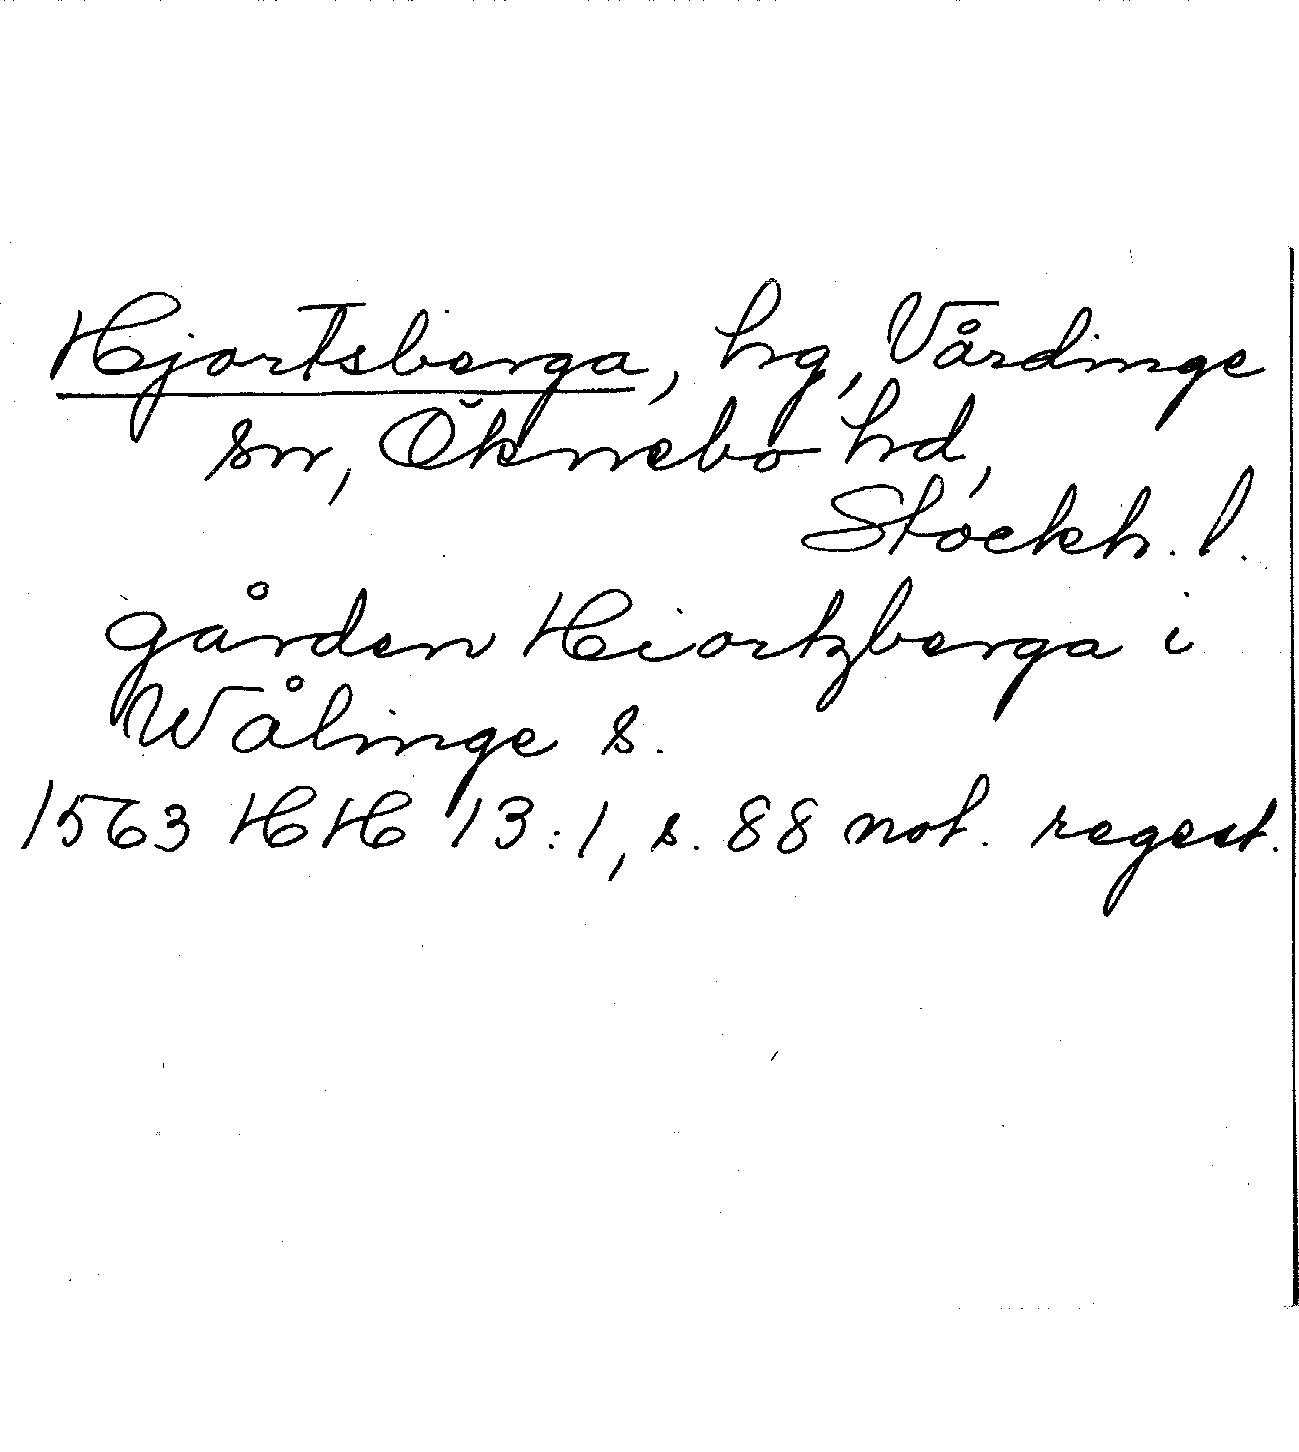 Hjortsberga, hg, Vårdinge
sn, Öknebo hd,
Stockh. l.
gården Hiortzberga i
Wålinge s.
1563 HH 13:1, s. 88 not. regest.